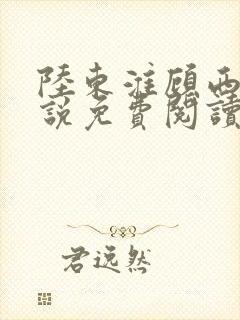 陸東淮顧西
說免費閱讀
君逸然